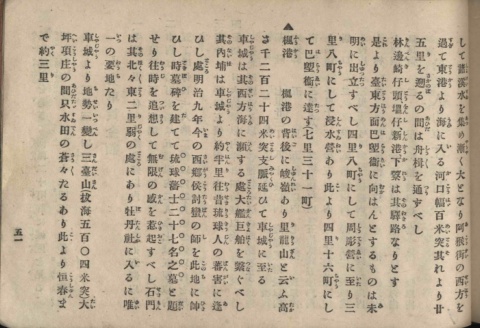 して諸溪水を集め漸く大となり阿猴街の西方を
過て東港より海に入る河口幅百米突其れより廿
五里を遡るの間は舟楫を通ずべし
林邊崎仔頭埔仔新港下藔は其驛路なりとす
是より臺東方面巴塱衞に向はんとするものは未
明に出立すべし四里八町にして周朥雷に至り三
里八町にして浸水營あり此より四里十六町にし
て巴塱衞に達す(七里三十一町)
▲楓港 楓港の背後に峻嶺あり里龍山と云ふ高
さ千二百二十四米突支脈延びて車城に至る
車城は其西方海に漸する處大艦巨舶を繫ぐべし
其内埔は車城より約半里往昔琉球人の蕃害に逢
ひし處明治九年今の西郷侯討蕃の師を此地に帥
ひし時墓碑を建てゝ琉球藩士二十七名之墓と題
せり往時を追想して無限の感を惹起すべし石門
は其北々東二里弱の處にあり牡丹社に入るに唯
一の要地たり
車城より地勢一變し三臺山(拔海五百〇四米突)大
坪項庄の間只水田の蒼々たるあり此より恒春ま
で約三里
五一